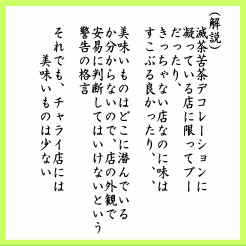 (解説)
滅茶苦茶デコレーションに
凝っている店に限ってブー
だったり、
きっちゃない店なのに味は
すこぶる良かったり、、
美味いものはどこに潜んでいる
か分からないので、店の外観で
安易に判断してはいけないという
警告の格言
それでも、チャライ店には
美味いものは少ない